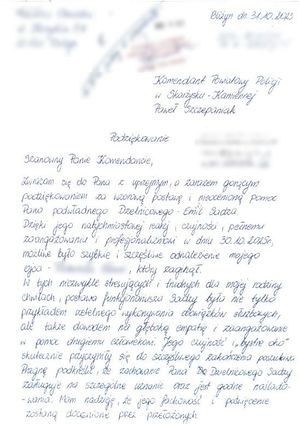 Bliżyn dn. 31.10.2025
Komendant Powiatowy Policji
w Skarżysku-Kamiennej
Paweł Szczepaniak
Podziękowanie
Szanowny Panie Komendancie,
Zwracam się do Pana z uprzejmym, a zarazem gorącym
podziękowaniem za wzorową postawę i nieocenioną pomoc
Pana podwładnego Dzielnicowego - Emil Sadza.
Dzięki jego natychmiastowej reakcji, czujności, pełnemu
zaangażowaniu i profesjonalizmowi w dniu 30.10.2025r.
możliwe było szybkie i szczęśliwe odnalezienie mojego
ojca - , który zaginął.
W tych niezwykle stresujących i trudnych dla mojej rodziny
chwilach, postawa funkcjonariusza Sadzy była nie tylko
przykładem rzetelnego wykonywania obowiązków służbowych,
ale także dowodem na głęboką empatię i zaangażowanie
w pomoc drugiemu człowiekowi. Jego czujność i „bystre oko"
skutecznie przyczyniły się do szczęśliwego zakończenia poszukiwań.
Pragnę podkreślić, że zachowanie Pana Dzielnicowego Sadzy
zasługuje na szczególne uznanie oraz jest godne naślado-
wania. Mam nadzieję, że jego fachowość i poświęcenie
zostaną docenione przez przełożonych.